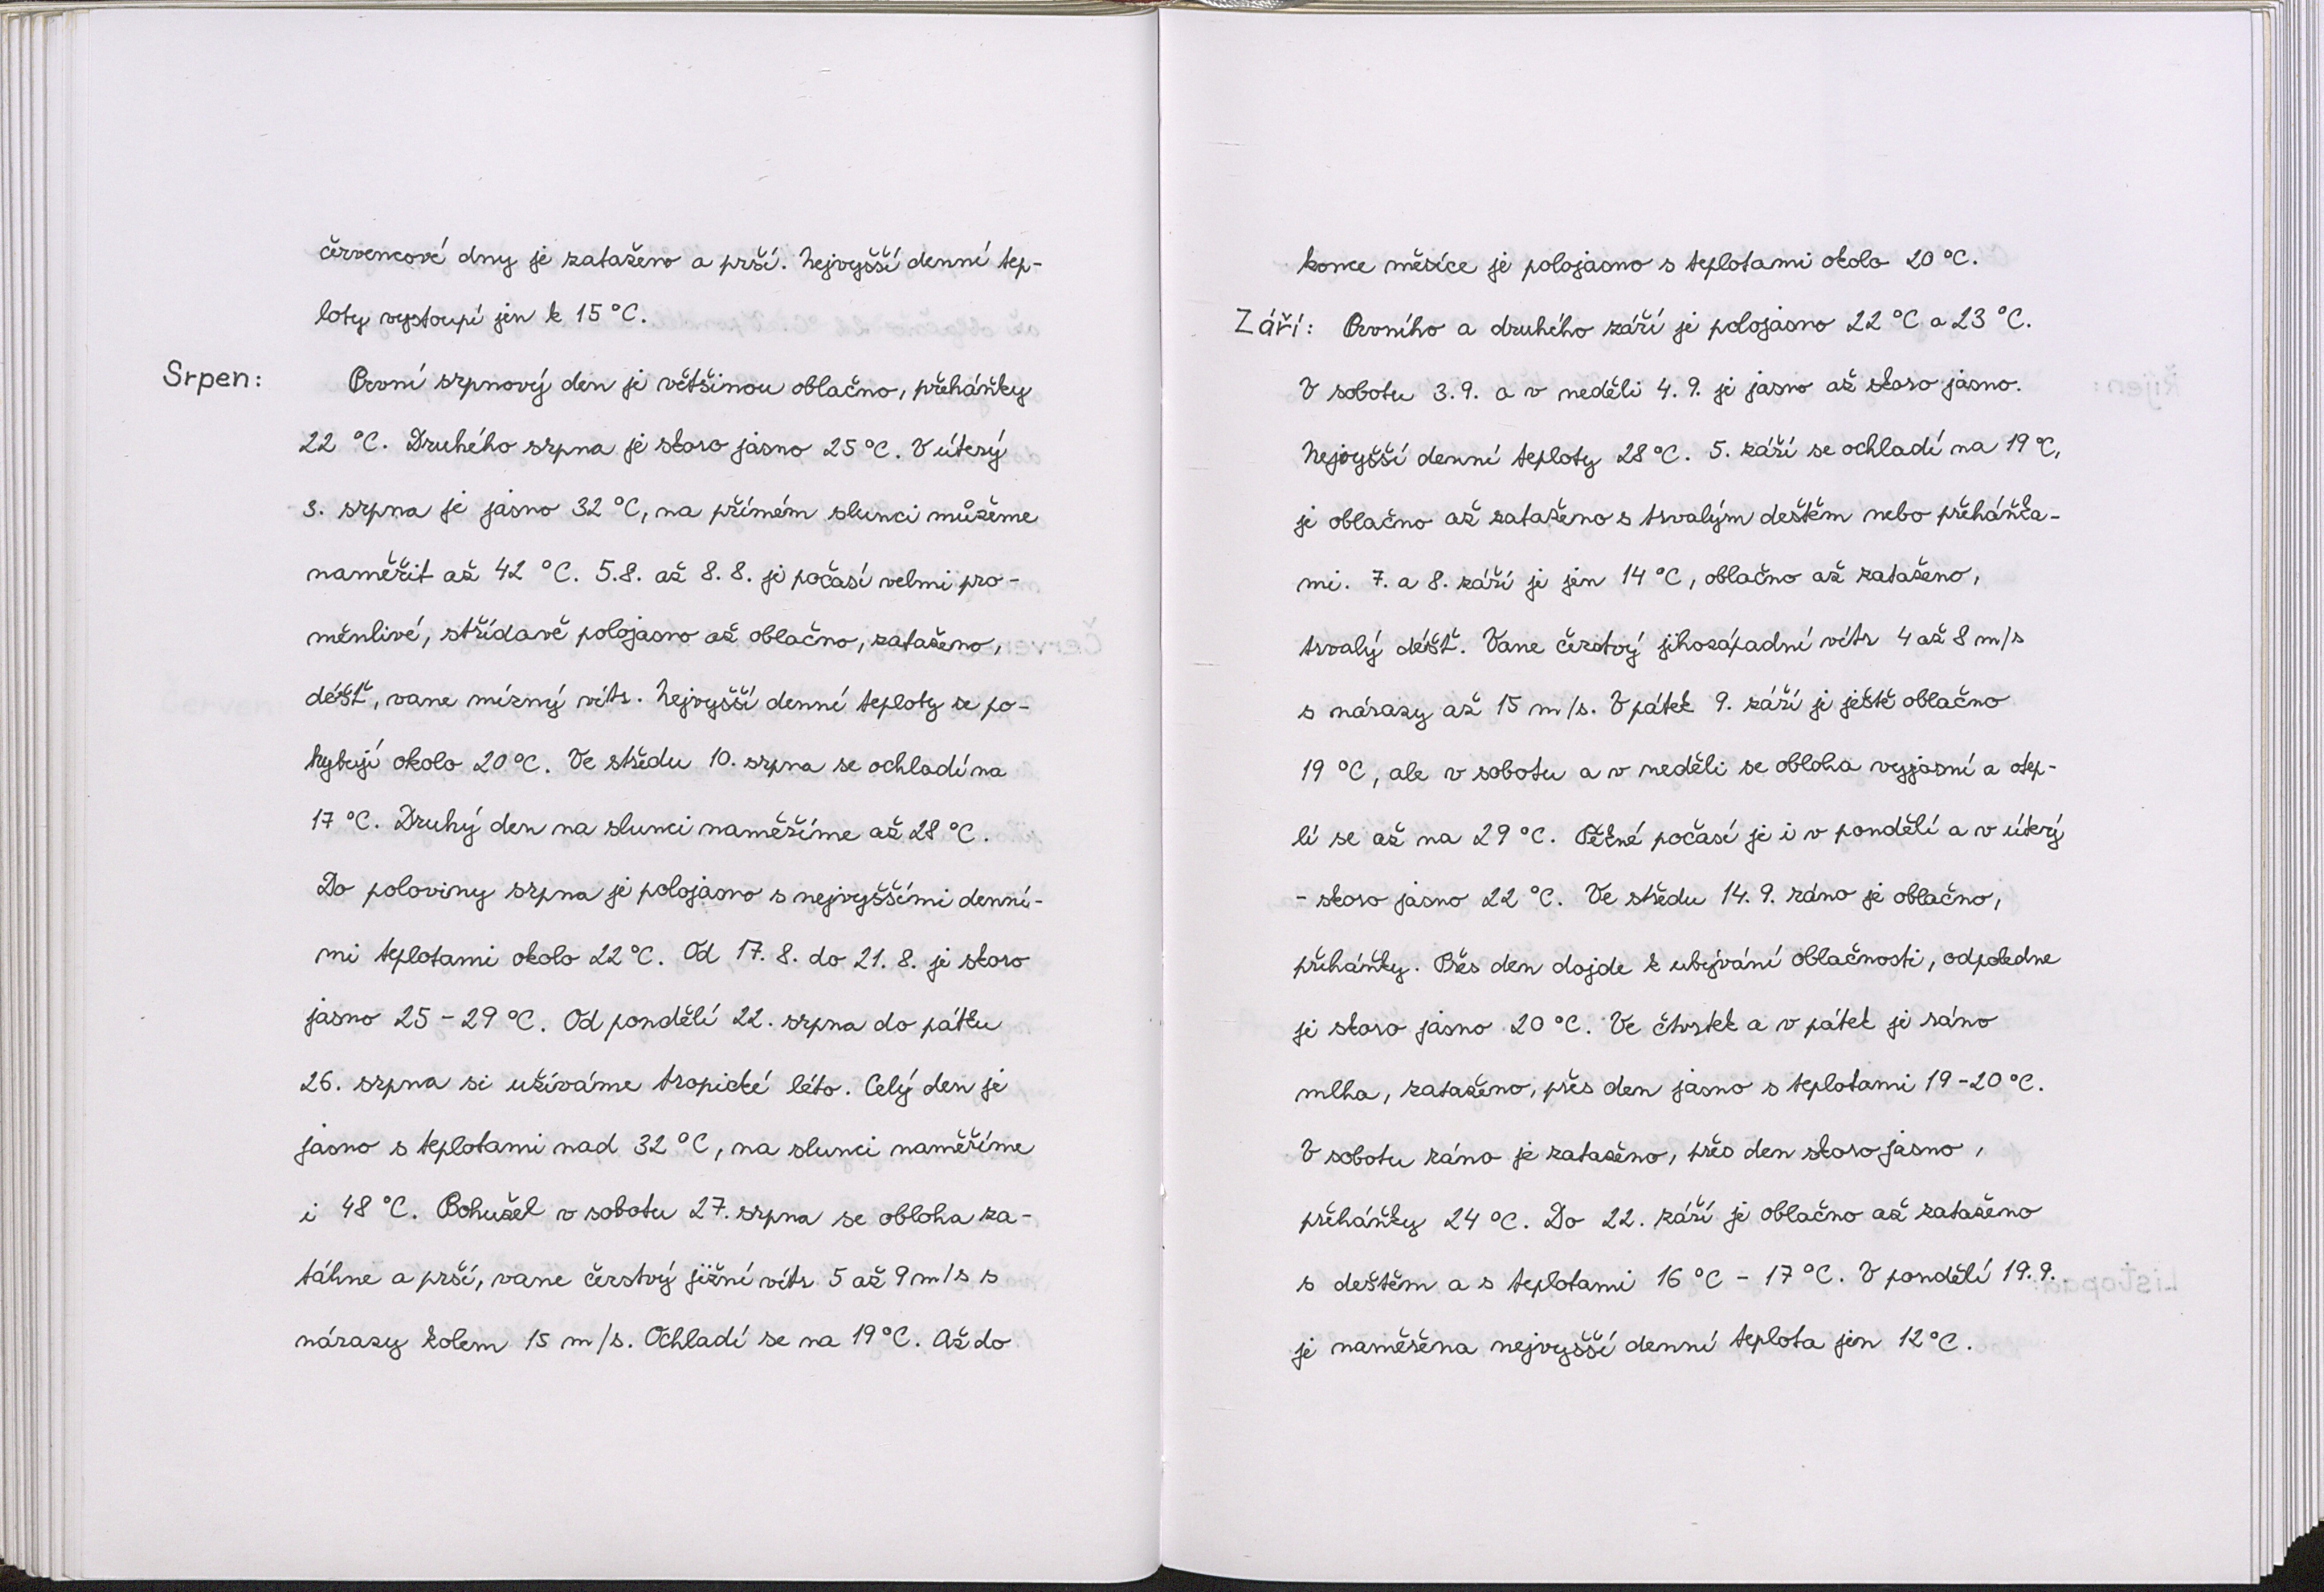 červencové dny je zataženo a prší. Nejvyšší denní tep-
loty vystoupí jen k 15 °C.
Srpen: První srpnový den je většinou oblačno, přeháňky
22 °C. Druhého srpna je skoro jasno 25 °C. V úterý
3. srpna je jasno 32 °C, na přímém slunci můžeme
naměřit až 42 °C. 5.8. až 8.8. je počasí velmi pro-
měnlivé, střídavě polojasno až oblačno, zataženo,
déšť, vane mírný vítr. Nejvyšší denní teploty se po-
hybují okolo 20 °C. Ve středu 10. srpna se ochladí na
17 °C. Druhý den na slunci naměříme až 28 °C.
Do poloviny srpna je polojasno s nejvyššími denní-
mi teplotami okolo 22 °C. Od 17. 8. do 21. 8. je skoro
jasno 25 - 29 °C. Od pondělí 22. srpna do pátku
26. srpna si užíváme tropické léto. Celý den je
jasno s teplotami nad 32 °C, na slunci naměříme
i 48 °C. Bohužel v sobotu 27. srpna se obloha za-
táhne a prší, vane čerstvý jižní vítr 5 až 9 m/s s
nárazy kolem 15 m/s. Ochladí se na 19 °C. Až do
konce měsíce je polojasno s teplotami okolo 20 °C.
Září: Prvního a druhého září je polojasno 22 °C a 23 °C.
V sobotu 3.9. a v neděli 4.9. je jasno až skoro jasno.
Nejvyšší denní teploty 28 °C. 5. září se ochladí na 19 °C,
je oblačno až zataženo s trvalým deštěm nebo přeháňka-
mi. 7. a 8. září je jen 14 °C, oblačno až zataženo,
trvalý déšť. Vane čerstvý jihozápadní vítr 4 až 8 m/s
s nárazy až 15 m/s. V pátek 9. září je ještě oblačno
19 °C, ale v sobotu a v neděli se obloha vyjasní a otep-
lí se až na 29 °C. Pěkné počasí je i v pondělí a v úterý
- skoro jasno 22 °C. Ve středu 14. 9. ráno je oblačno,
přeháňky. Přes den dojde k ubývání oblačnosti, odpoledne
je skoro jasno 20 °C. Ve čtvrtek a v pátek je ráno
mlha, zataženo, přes den jasno s teplotami 19 - 20 °C.
V sobotu ráno je zataženo, přes den skoro jasno,
přeháňky 24 °C. Do 22. září je oblačno až zataženo
s deštěm a s teplotami 16 °C - 17 °C. V pondělí 19.9.
je naměřena nejvyšší denní teplota jen 12 °C.